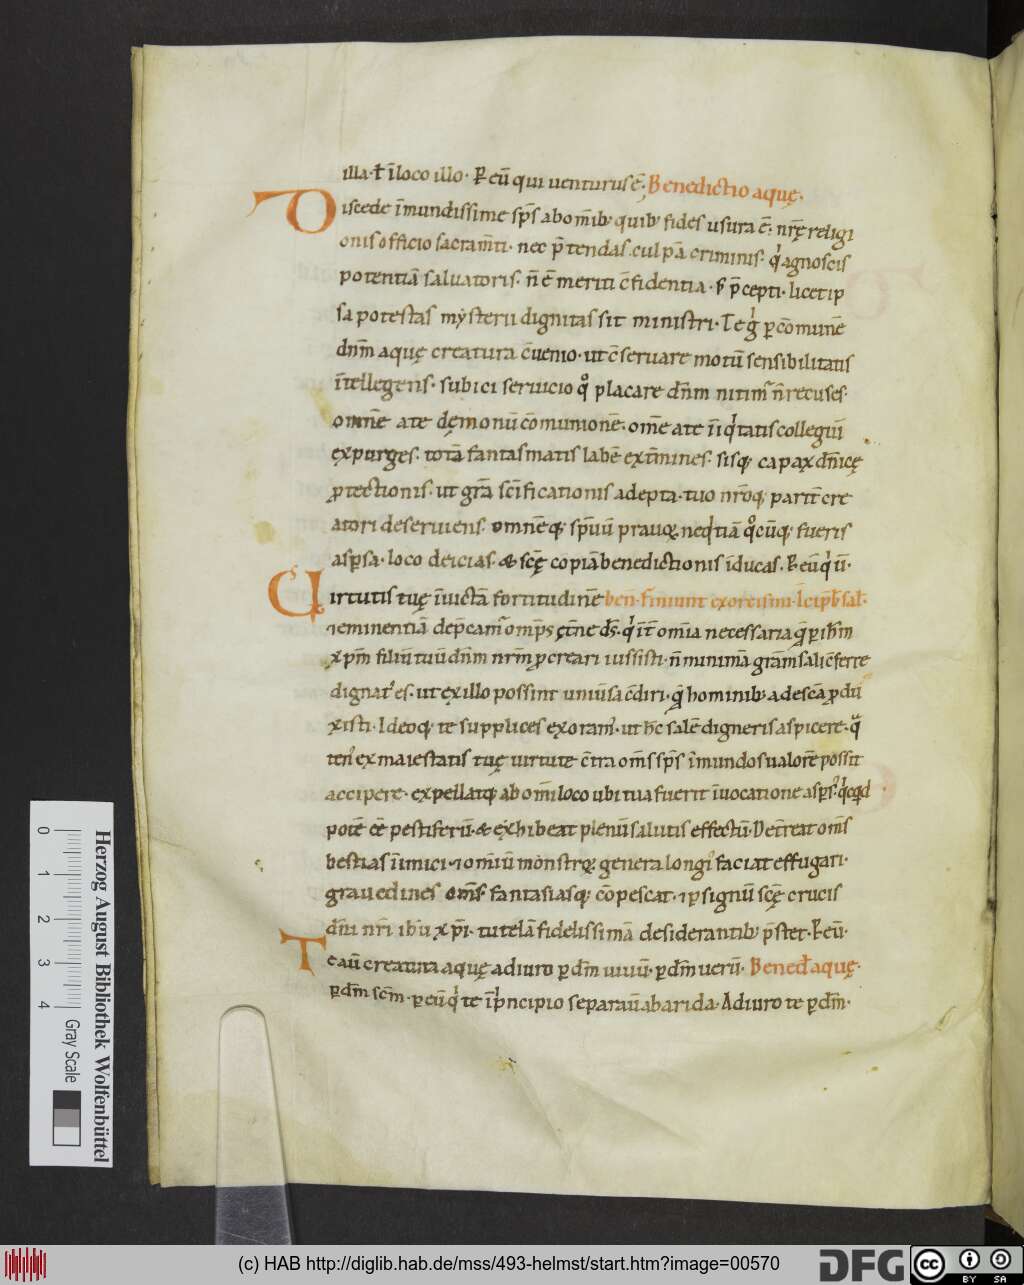 illa · ł ī loco illo · P̄ eū qui uenturus ē̄. Benedictio aquę.
Discede īmundissime sps̄ ab om̄ib' quib' fides usura ē̄ · nrę̄ religi
onis officio sacram̄ti · nec p̄tendas culpā criminis · q̍ agnoscis
potentiā saluatoris · n̄ ē meriti c̄fidentia · s; p̄cepti · licet ip
sa potestas mẏsterii dignitas sit ministri · Te g̍ p cōmunē
dnm̄ aquę creatura c̄uenio · ut c̄seruare motū sensibilitatis
īntellegens · subici seruicio qͦ placare dn̄m nitim̕ n̄ recuses ·
omnē a te dęmonū cōmunionē · omē a te īiq̍tatis collegiū
expurges · totā fantasmatis labē ext̄mines · sisq; capax dn̄icę
ꝓtectionis · ut gr̄a scīficationis adepta · tuo nr̄oq; parit̄ cre
atori deseruiens · omnēq; sp̄uū prauoꝝ neq̍tiā qͦcūq; fueris
aspsa · loco deicias · & scę̄ copiā benedictionis īducas · P eū q̍ ū ·
Uirtutis tuę īuictā fortitudinē ben · f̄iniunt exorcismi · Īcip̄ b̄ sal̄ ·
⁊ eminentiā dep̄cam̕ om̄ps ęt̄ne ds̄ · q̍ īt̄ om̄ia necessaria q̄ p ihm̄
xpm̄ filiū tuū dn̄m nrm̄ ꝓcreari iussisti · n̄ minimā grām̄ sali c̄ferre
dignat̕ es · ut ex illo possint uniūsa c̄diri · q̄ hominib; ad escā ꝓdu
xisti · Ideoq; te supplices exoram̕ · ut hc̄ salē digneris aspicere · qͣ
ten̕ ex maiestatis tuę uirtute c̄tra om̄s sps̄ īmundos ualorē possit
accipere · expellatq; ab om̄i loco ubi tua fuerit īuocatione aspsͬ · q̍cq̍d
potē cē pestiferū · & exhibeat plenū salutis effectū · Det̄reat om̄s
bestias īimici · ⁊ om̄iū monstroꝝ genera longi̕ faciat effugari ·
grauedines om̄s fantasiasq; cōpescat · ⁊ p signū scę̄ crucis
dn̄i nr̄i ihū xp̄i · tutelā fidelissimā desiderantib; p̄stet · P eū ·
Te aū creatura aquę adiuro p dm̄ uiuū · p dm̄ uerū · Bened̄ aquę ·
p dm̄ scm̄ · p eū q̍ te ī p̍ncipio separau̅ ab arida · Adiuro te p dm̄ ·
0 1 2 3 4
Gray Scale
Herzog August Bibliothek Wolfenbüttel
(c) HAB http://diglib.hab.de/mss/493-helmst/start.htm?image=00570
DFG
cc
BY SA